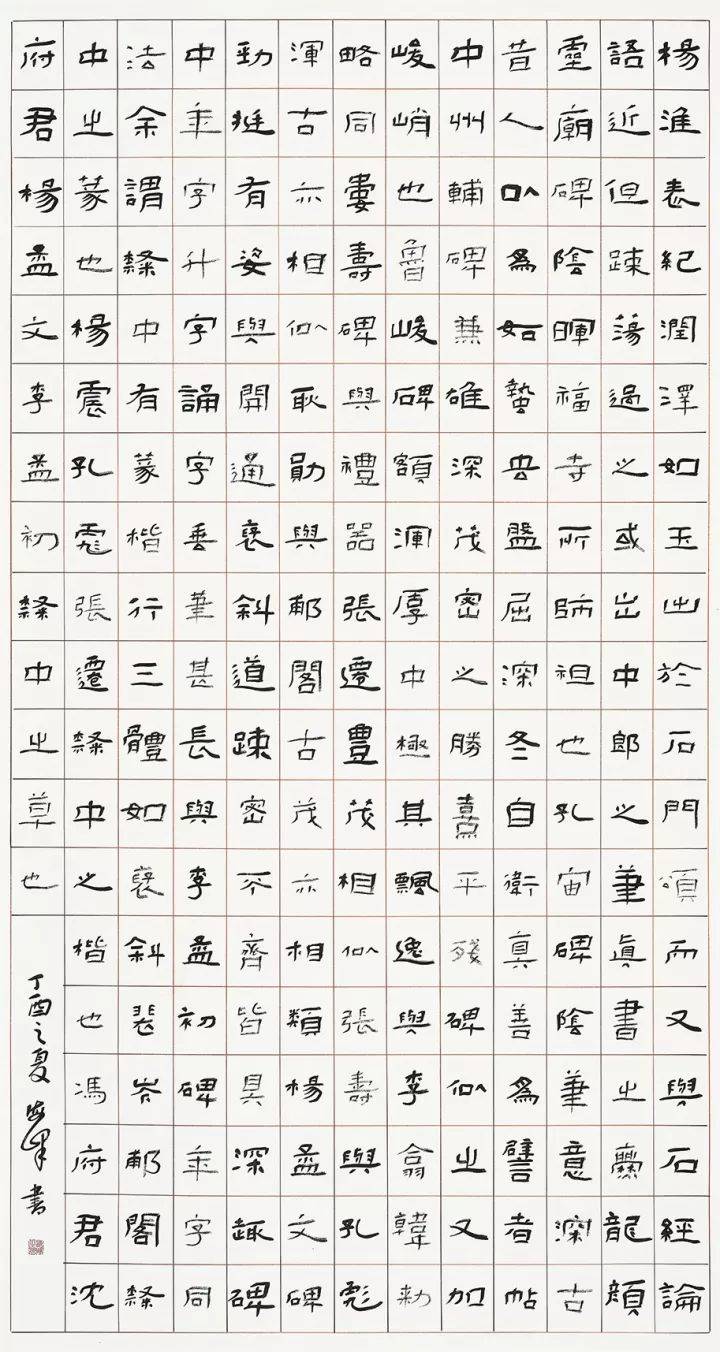 楊淮表紀潤澤如玉出於石門頌而又與石經論
語近但踈蕩過之或出中郎之筆真書之爨龍顏
靈廟碑陰暉福寺所師祖也孔宙碑陰筆意深古
昔人以為如蟄虫盤屈深冬自衛真善為譬者帖
中州輔碑兼雄深茂密之勝熹平殘碑似之又加
峻峭也魯峻碑額渾厚中極其飄逸與李翕韓勑
略同婁壽碑與禮器張遷豊茂相似張壽與孔彪
渾古亦相似耿勛與郙閣古茂亦相類楊孟文碑
勁挺有姿與開通褒斜道踈密不齊皆具深趣碑
中年字升字誦字垂筆甚長與李孟初碑年字同
法余謂隸中有篆楷行三體如褒斜裴岑郙閣隸
中之篆也楊震孔彪張遷隸中之楷也馮府君沈
府君楊孟文李孟初隸中之草也
丁酉之夏 書